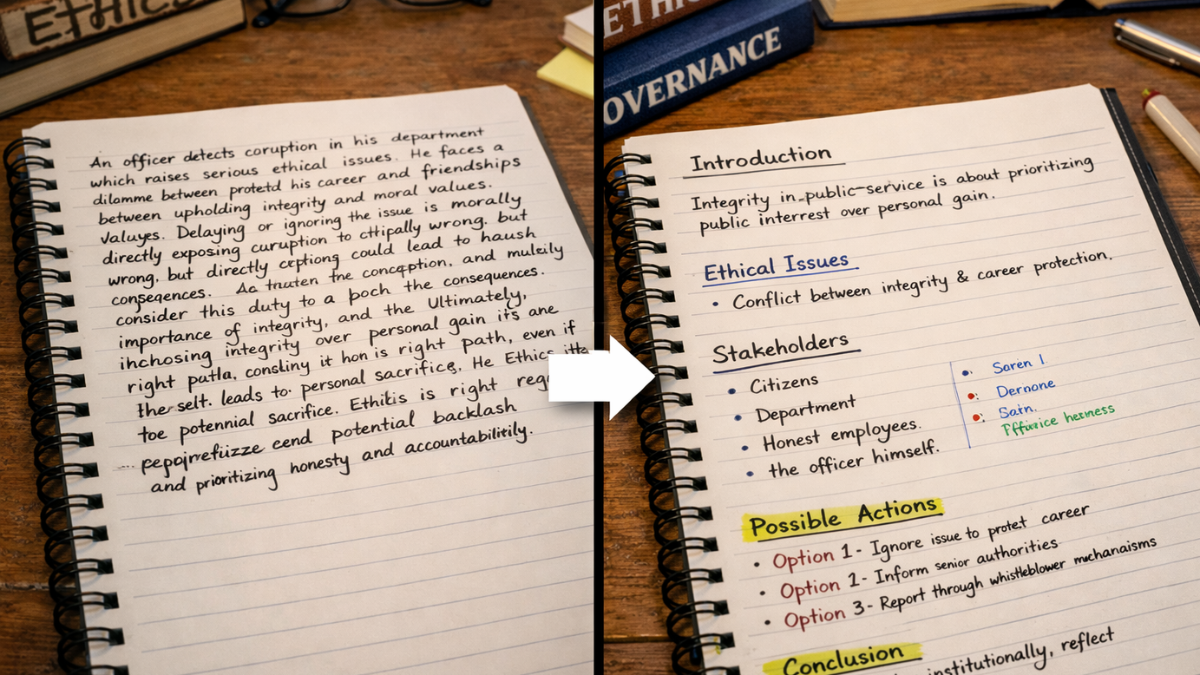 ETHICS
An officer detects coruption in his department
which raises serious ethical issues. He faces a
dilamme between protetd his career and friendships
between upholding integrity and moral values.
Valuyes. Delaying or ignoring the issue is morally
directly exposing curuption to wrong. but
wrong, but directly could lead to haush
conseqences. the and
consider this duty to a the consequences.
importance of integrity, and the Ultimately,
integrity over personal gain it's ane
right is right path, even if
the self. leads to personal sacrifice. He Ethics
toe potennial sacrifice. is right
potential backlash
and prioritizing honesty and accountabitirily.
ETHICS
OVERNANCE
Introduction
Integrity in public-service is about prioritizing
public interrest over personal gain.
Ethical Issues
• Conflict between integrity & career protection.
Stakeholders
• Citizens
• Department
• Honest employees.
• the officer himself.
• Soren 1.
• Dernone
• Satn.
Possible Actions
• Option 1 - Ignore issue to protet career
• Option 2 - Inform senior authorities
• Option 3 - Report through whistleblower mechanaisms
Conclusion
institutionally, reflect